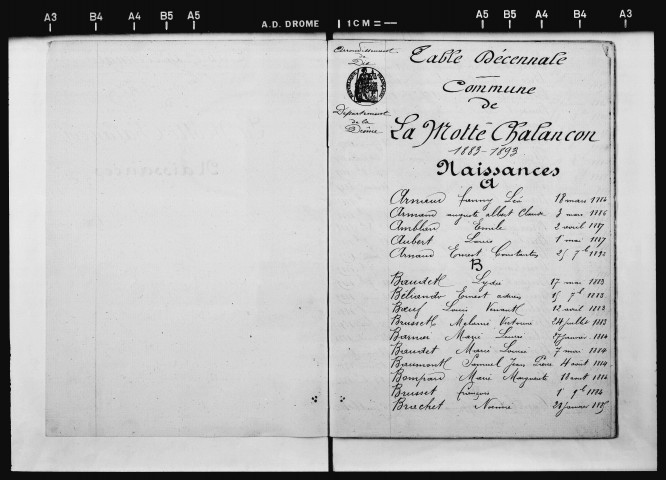 A3 B4 A4 B5 A5 A.D. DROME 1CM = A5 B5 A4 B4 A3
Arrondissement
de
Die
Département
de la
Drôme
Table Décennale
Commune
de
La Motte Chalancon
1883-1893
Naissances
A
Armand Fanny Léa 18 mars 1884
Armand auguste albert Claude 3 mars 1886
Amblard Emile 2 avril 1887
Aubert Louis 1 mai 1887
Arnaud Ernest Constantin 25 7b
B
Baudet Lydie 17 mai 1883
Béliando Ernest 15 7b 1883
Bœuf Louis 12 avril 1883
Brusset Mélanie 24 juillet 1883
Barnier Marie Louise 27 janvier 1884
Baudet Marie Louise 7 mai 1884
Baumont Samuel Jean Pierre 4 août 1884
Bompard Marie Marguerite 11 août 1884
Brusset François 1 9b 1884
Brachet Noémie 21 janvier 1885